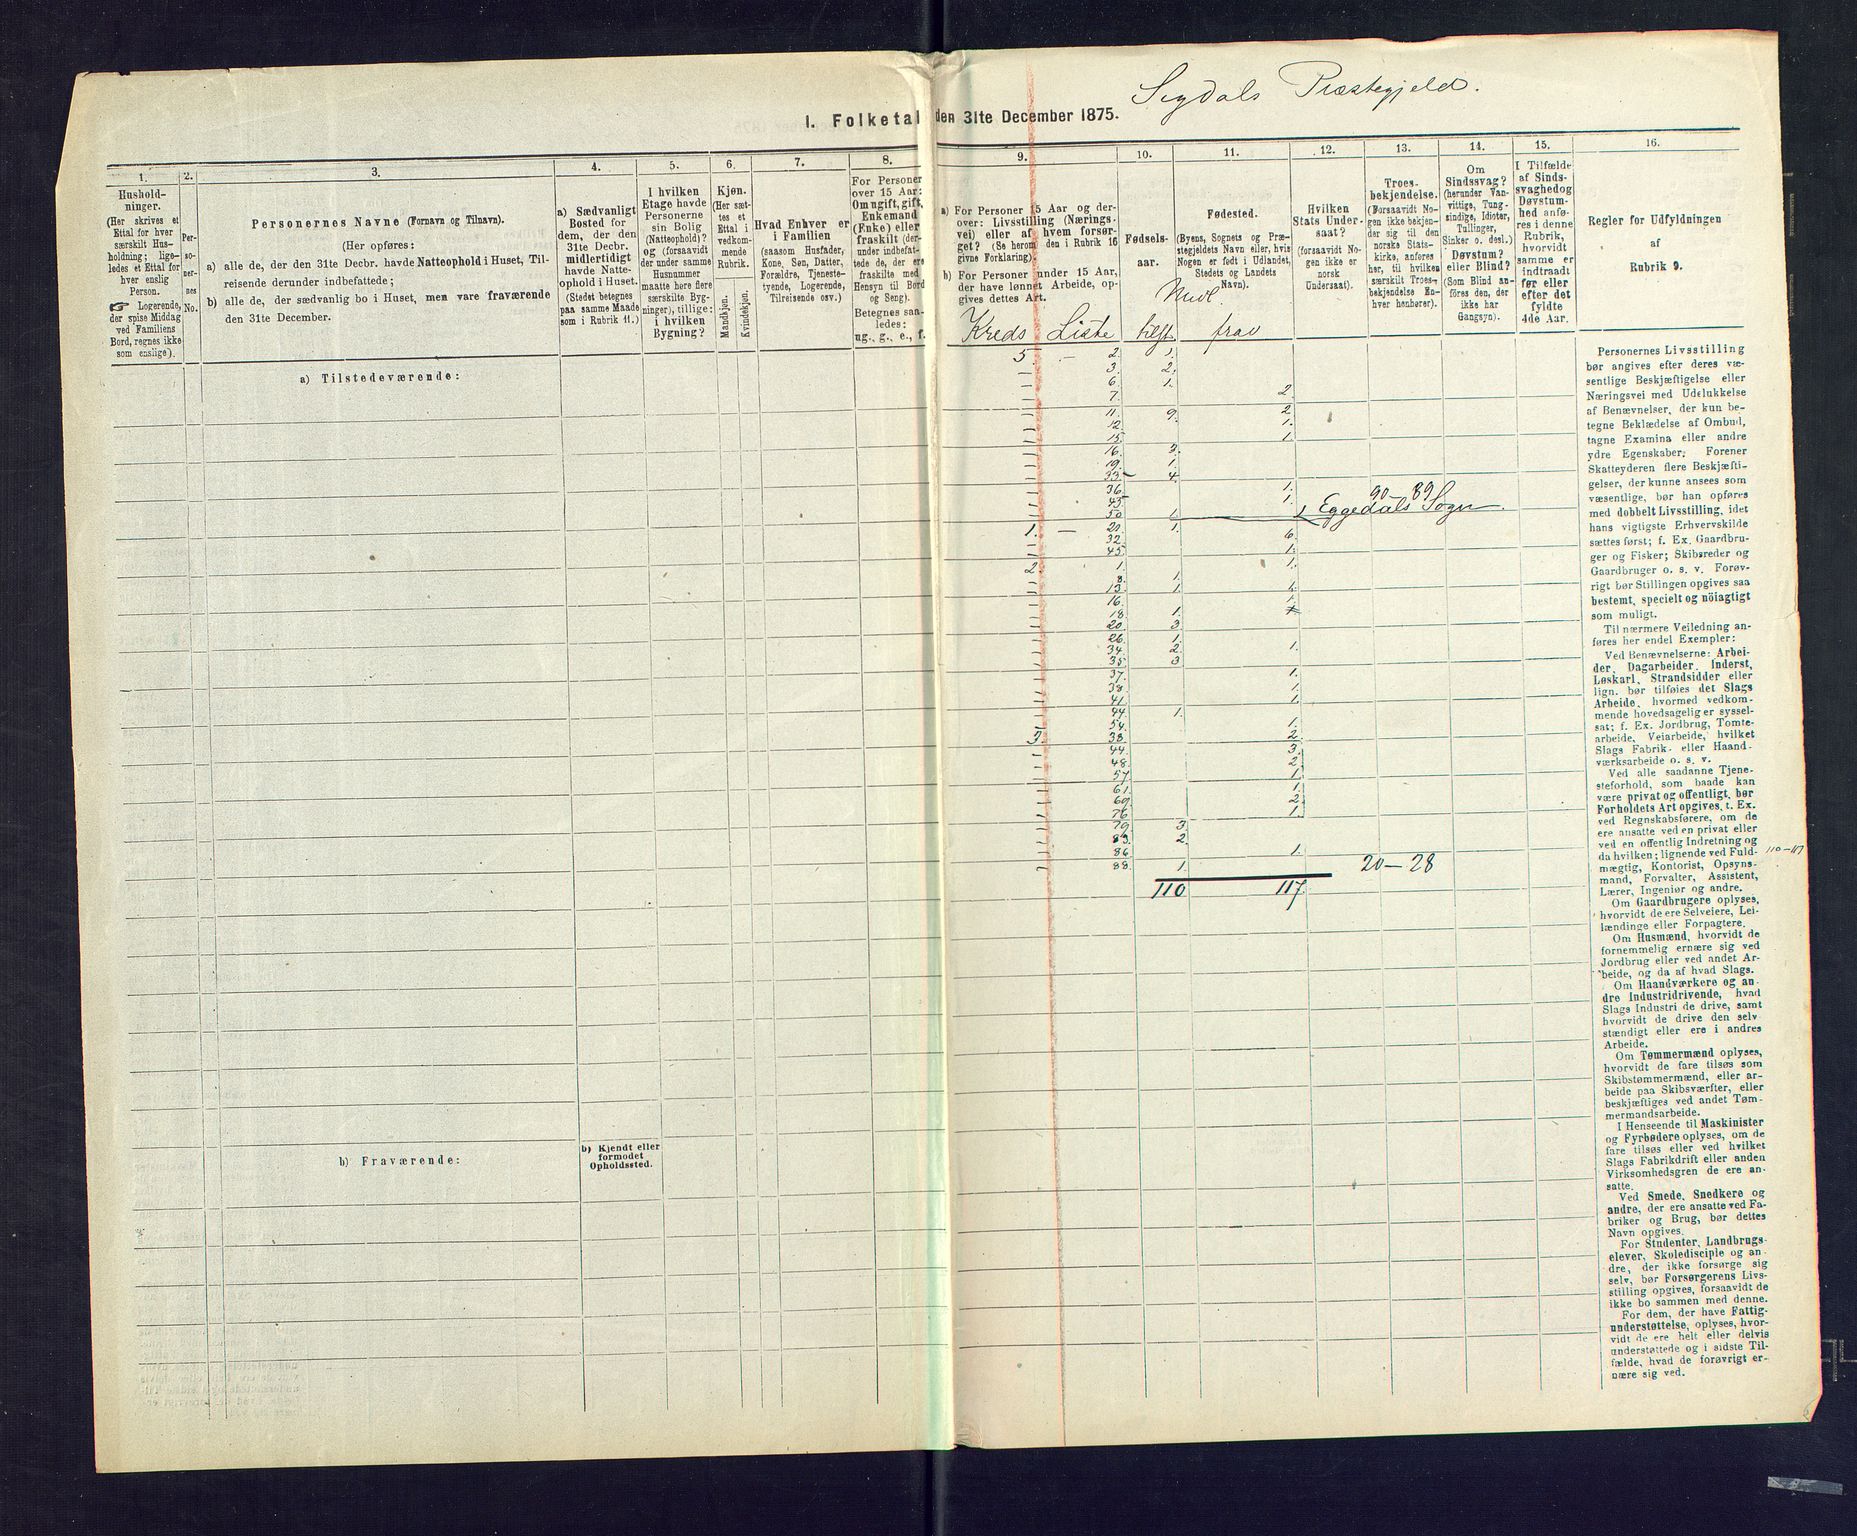 Sigdals Præstegjeld.
1. Folketal den 31te December 1875.
1.
Hushold-
ninger.
(Her skrives et
Ettal for hver
særskilt Hus-
holdning; lige-
ledes et Ettal for
hver enslig
Person.
☞ Logerende,
der spise Middag
ved Familiens
Bord, regnes ikke
som enslige).
2.
Per-
so-
ner-
nes
No.
3.
Personernes Navne (Fornavn og Tilnavn).
(Her opføres:
a) alle de, der den 31te Decbr. havde Natteophold i Huset, Til-
reisende derunder indbefattede;
b) alle de, der sædvanlig bo i Huset, men vare fraværende
den 31te December.
4.
a) Sædvanligt
Bosted for
dem, der den
31te Decbr.
midlertidigt
havde Natte-
ophold i Huset.
(Stedet betegnes
paa samme Maade
som i Rubrik 11.)
5.
I hvilken
Etage havde
Personerne
sin Bolig
(Natteophold)?
og (forsaavidt
der under samme
Husnummer
maatte høre flere
særskilte Byg-
ninger), tillige:
i hvilken
Bygning?
6.
Kjøn.
(Her sæt-
tes et
Ettal i
vedkom-
mende
Rubrik.
Mandkjøn.
Kvindekjøn.
7.
Hvad Enhver er
i Familien
(saasom Husfader,
Kone, Søn, Datter,
Forældre, Tjeneste-
tyende, Logerende,
Tilreisende osv.)
8.
For Personer
over 15 Aar:
Om ugift, gift,
Enkemand
(Enke) eller
fraskilt (der-
under indbefat-
tede de, der ere
fraskilte med
Hensyn til Bord
og Seng).
Betegnes saa-
ledes:
ug., g., e., f.
9.
a) For Personer 15 Aar og der-
over: Livsstilling (Nærings-
vei) eller af hvem forsør-
get? (Se herom den i Rubrik 16
givne Forklaring).
b) For Personer under 15 Aar,
der have lønnet Arbeide, op-
gives dettes Art.
10.
Fødsels-
aar.
11.
Fødested.
(Byens, Sognets og Præ-
stegjeldets Navn eller, hvis
Nogen er født i Udlandet,
Stedets og Landets
Navn).
12.
Hvilken
Stats Under-
saat?
(forsaavidt No-
gen ikke er
norsk
Undersaat).
13.
Troes-
bekjendelse.
(Forsaavidt No-
gen ikke bekjen-
der sig til den
norske Stats-
kirke, anføres
her, til hvilken
særskilt Troes-
bekjendelse En-
hver henhører).
14.
Om
Sindssvag?
(herunder Van-
vittige, Tung-
sindige, Idioter,
Tullinger,
Sinker o. desl.)
Døvstum?
eller Blind?
(Som Blind an-
føres den, der
ikke har
Gangsyn).
15.
I Tilfælde
af Sinds-
svaghed og
Døvstum-
hed anfø-
res i denne
Rubrik,
hvorvidt
samme er
indtraadt
før eller
efter det
fyldte
4de Aar.
16.
Regler for Udfyldningen
af
Rubrik 9.
Kreds Liste tilst frav
a) Tilstedeværende:
5 — 2. 1.
3. 2.
6. 1.
7. 2.
11. 9. 2.
12. 1.
15. 1.
16. 3.
19. 1.
33 4.
36 1.
45 1.
50 1. 1
90 — 89
Eggedals Sogn.
1. — 20 1.
32. 6.
45. 1.
2. 1. 1.
8. 1.
13. 1. 4.
16. 1.
18. 1.
20. 3.
26. 1.
34. 2. 1.
35 3
37. 1.
38. 1.
41. 1.
44. 1.
54. 1.
3. 38. 2.
44. 3.
48. 2
57. 1.
61. 1.
69. 2.
76 1.
79. 3.
83. 2.
86 1.
88. 1.
20 — 28
110 117
110 — 117
b) Fraværende:
b) Kjendt eller
formodet
Opholdssted.
Personernes Livsstilling
bør angives efter deres væ-
sentlige Beskjæftigelse eller
Næringsvei med Udelukkelse
af Benævnelser, der kun be-
tegne Beklædelse af Ombud,
tagne Examina eller andre
ydre Egenskaber. Forener
Skatteyderen flere Beskjæfti-
gelser, der kunne ansees som
væsentlige, bør han opføres
med dobbelt Livsstilling, idet
hans vigtigste Erhvervskilde
sættes først; f. Ex. Gaardbru-
ger og Fisker; Skibsreder og
Gaardbruger o. s. v. Forøv-
rigt bør Stillingen opgives saa
bestemt, specielt og nöiagtigt
som muligt.
Til nærmere Veiledning an-
føres her endel Exempler:
Ved Benævnelserne: Arbei-
der, Dagarbeider, Inderst,
Løskarl, Strandsidder eller
lign. bør tilføies det Slags
Arbeide, hvormed vedkom-
mende hovedsagelig er syssel-
sat; f. Ex. Jordbrug, Tomte-
arbeide, Veiarbeide, hvilket
Slags Fabrik- eller Haand-
værksarbeide o. s. v.
Ved alle saadanne Tjene-
steforhold, som baade kan
være privat og offentligt, bør
Forholdets Art opgives, t. Ex.
ved Regnskabsførere, om de
ere ansatte ved en privat eller
ved en offentlig Indretning og
da hvilken; lignende ved Fuld-
mægtig, Kontorist, Opsyns-
mand, Forvalter, Assistent,
Lærer, Ingeniør og andre.
Om Gaardbrugere oplyses,
hvorvidt de ere Selveiere, Lei-
lændinge eller Forpagtere.
Om Husmænd, hvorvidt de
fornemmelig ernære sig ved
Jordbrug eller ved andet Ar-
beide, og da af hvad Slags.
Om Haandværkere og an-
dre Industridrivende, hvad
Slags Industri de drive, samt
hvorvidt de drive den selv-
stændigt eller ere i andres
Arbeide.
Om Tømmermænd oplyses,
hvorvidt de fare tilsøs som
Skibstømmermænd, eller ar-
beide paa Skibsværfter, eller
beskjæftiges ved andet Tøm-
mermandsarbeide.
I Henseende til Maskinister
og Fyrbødere oplyses, om de
fare tilsøs eller ved hvilket
Slags Fabrikdrift eller anden
Virksomhedsgren de ere an-
satte.
Ved Smede, Snedkere og
andre, der ere ansatte ved Fa-
briker og Brug, bør dettes
Navn opgives.
For Studenter, Landbrugs-
elever, Skoledisciple og an-
dre, der ikke forsørge sig
selv, bør Forsørgerens Livs-
stilling opgives, forsaavidt de
ikke bo sammen med denne.
For dem, der have Fattig-
understøttelse, oplyses, hvor-
vidt de ere helt eller delvis
understøttede og i sidste Til-
fælde, hvad de forøvrigt er-
nære sig ved.